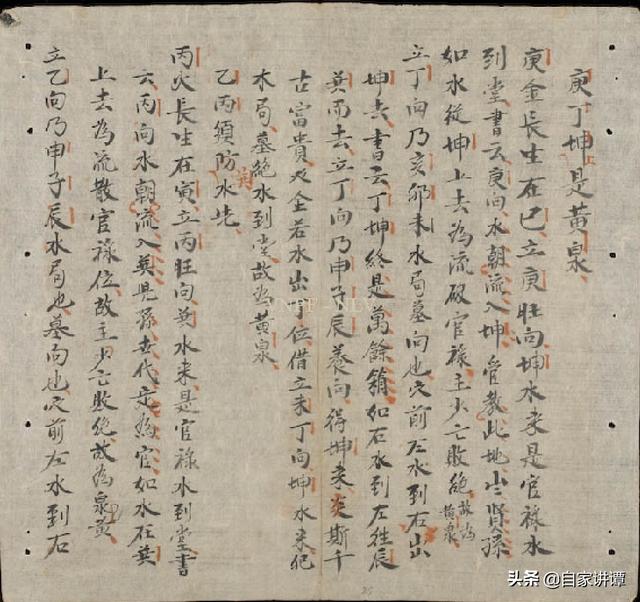 庚丁坤是黃泉
庚金長生在巳立庚旺向坤水来是官祿水
到堂書云庚向水朝流入坤管教此地出賢孫
如水從坤上去為流破官祿主少亡敗絕故為黃泉
立丁向乃亥卯未水局墓向也穴前左水到右出
坤去書云丁坤終是萬餘箱如右水到左往辰
巽而去立丁向乃申子辰養向得坤来矣斯千
古富貴双全若水出丁位借立未丁向坤水来犯
木局墓絕水到堂故為黃泉
乙丙須防巽水先
丙火長生在寅立丙旺向巽水来是官祿水到堂書
云丙向水朝流入巽兒孫世代定為官如水在巽
上去為流散官祿位故主少亡敗絕故為泉黃
立乙向乃申子辰水局也墓向也穴前左水到右
头条 @自家讲谭